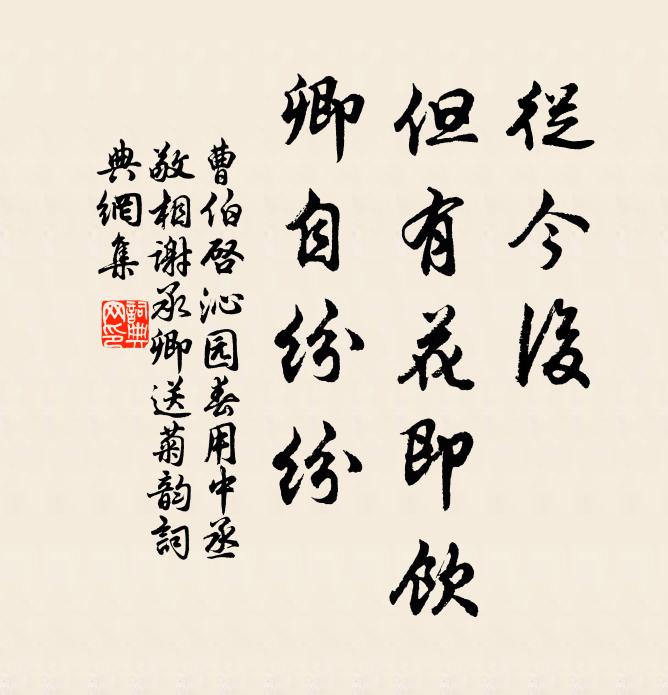 從今後
但有花即飲
卿自紛紛
曹伯啓沁园春用中丞
敬相谢承卿送菊韵詞
典網集
詞典
网印